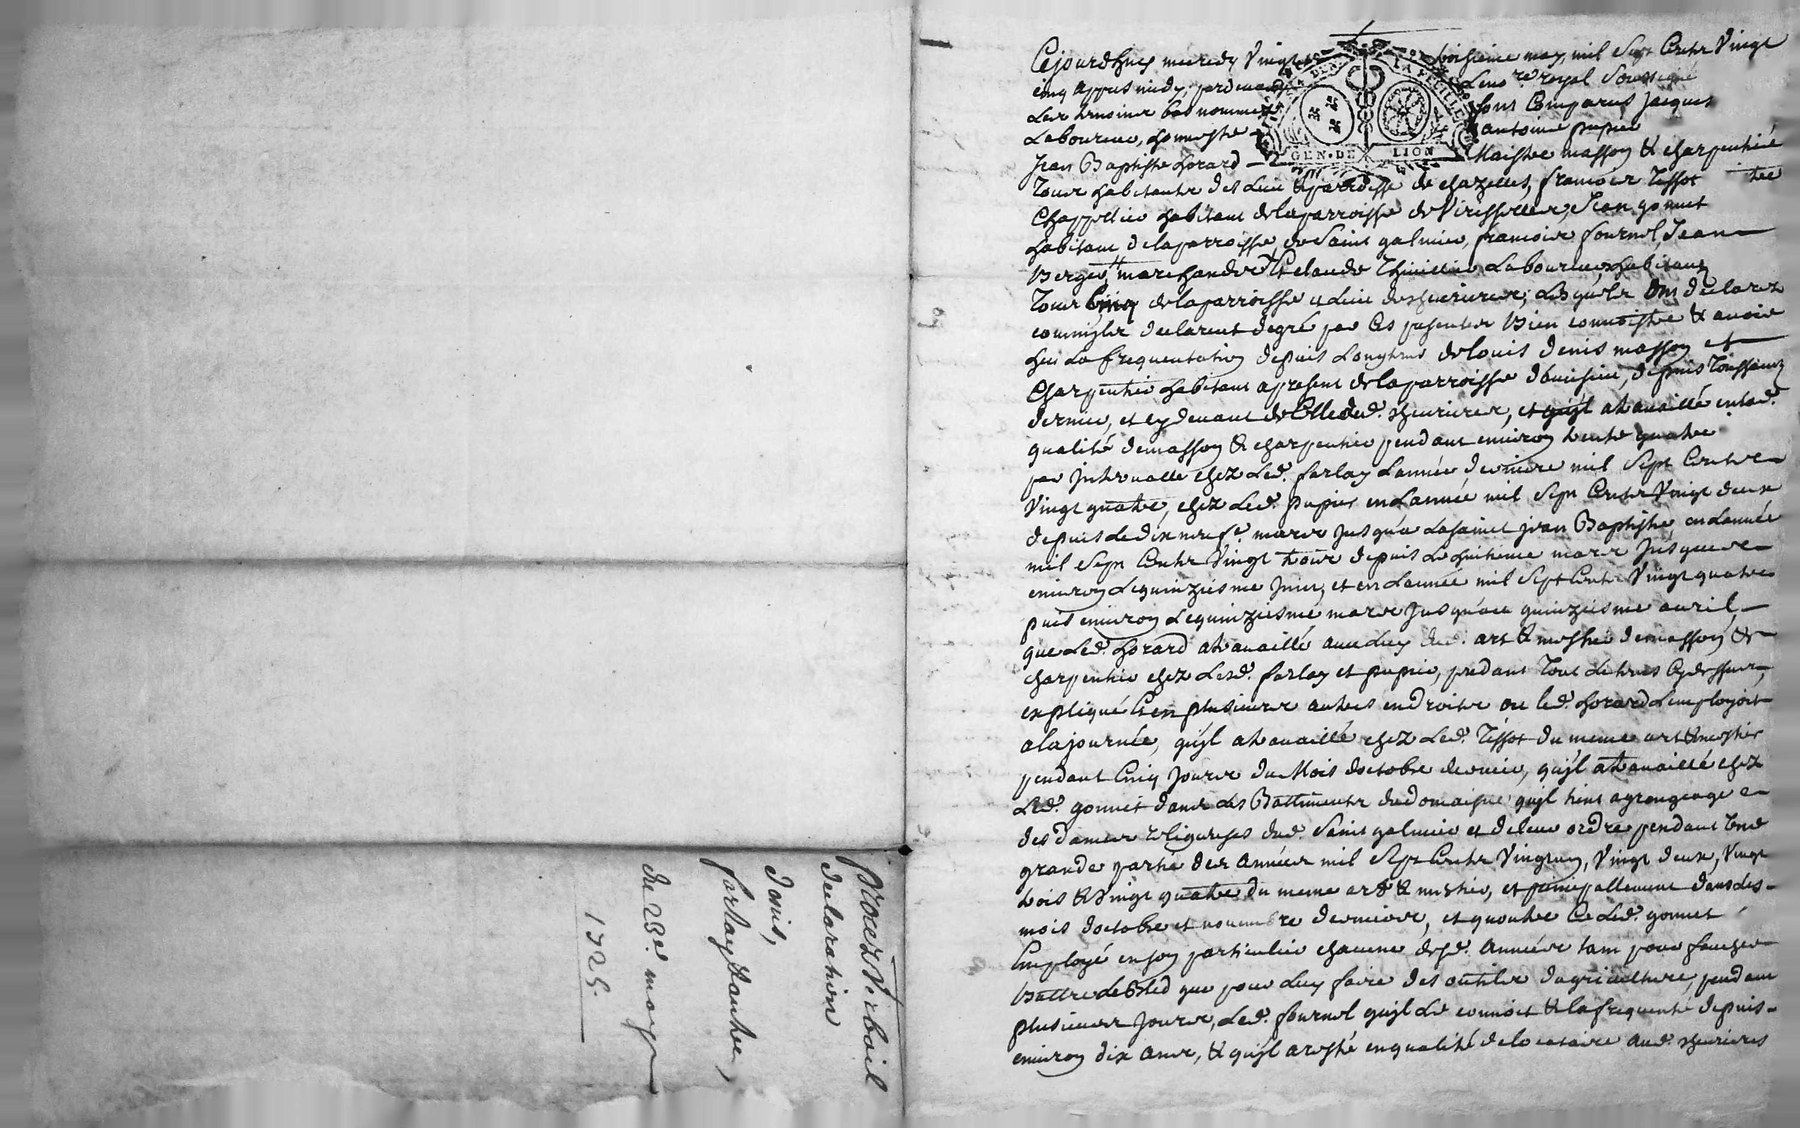 Cejourdhuy mecredy Vingt troisieme may mil sept Cents Vingt
cinq appres midy, pardevant le nore royal soussigné
des temoins bas nommes sont Comparus Jacques
Laboureur, honneste antoine pupier
Jean Baptiste Lorard Maistre masson & charpentier
tous habitants des lieu & parroisse de chazelles, francois Tissot
Chappellier habitant de la parroisse de Virisselles, Jean gonnet
habitant de la parroisse de Saint galmier, francois fournel, Jean
Berger marchands & Claude laboureur habitants
tous Cinq de la parroisse & lieu de chevrieres, lesquels ont declarez
comme ils declarent de gré par ces presentes Bien connoistre & avoir
heu la frequentation depuis Longtems de louis denis masson et
Charpentier habitant apresent de la parroisse depuis Toussaints
dernier, et cy devant de Celle dud. chevrieres, et quyl a travaillé en lad.
qualité de masson & charpentier pendant environ trente quatre
par Intervalle chez Led. farlay Lannée derniere mil Sept Cents
Vingt quatre, chez Led. pupier en Lannée mil Sept Cents Vingt deux
depuis Le dix neufe mars Jusqua La saint jean Baptiste en Lannée
mil Sept Cents Vingt trois depuis Le huitieme mars Jusques
environ Le quinziesme Juin, et en Lannée mil Sept Cents Vingt quatre
puis environ Le quinziesme mars Jusquau quinziesme avril
que Led. Lorard a travaillé avec Luy dud. art & mestier de masson &
charpentier chez Lesd. farlay et pupier, pendant Tout Le tems Cy dessus
expliqué & en plusieurs autres endroits ou led. Lorard Lemployoit
a la journée, quyl a travaillé chez Led. Tissot du meme art & mestier
pendant Cinq Jours du Mois doctobre dernier, quyl a travaillé chez
Led. gonnet dans Les Battiments du domaine quyl tient a grangeage
des dames religieuses dud. Saint galmier et de leur ordre pendant Une
grande partie des Années mil Sept Cents Vingt un, Vingt deux, Vingt
trois & Vingt quatre du meme art & mestier, et principallement dans les
mois doctobre et novembre derniers, et quoutre Ce Led. gonnet
Employé en son particulier chacune desd. Années tant pour faucher
Battre Le Bled que pour Luy faire des outils dagriculture, pendant
plusieurs Jours, Led. fournel quyl Le connoit & la frequenté depuis
environ dix ans, & quyl a resté en qualité de locataire aud. chevrieres
GEN · DE LION
LA FEUILLE
declaration
Denis,
farlay & autres,
du 23e. may
1725.